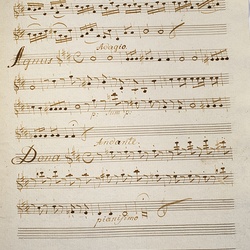 Adagio.
Agnus
Andante.
Dona
pianissimo